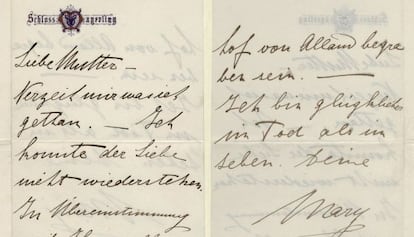 Schloss Mayerling
Liebe Mutter –
Verzeit mir was ich
gettan. – Ich
konnte der Liebe
nicht wiederstehen.
In Übereinstimmung
hof von Alland begra
ben sein. –
Ich bin glüglicher
im Tod als im
Leben. Deine
Mary